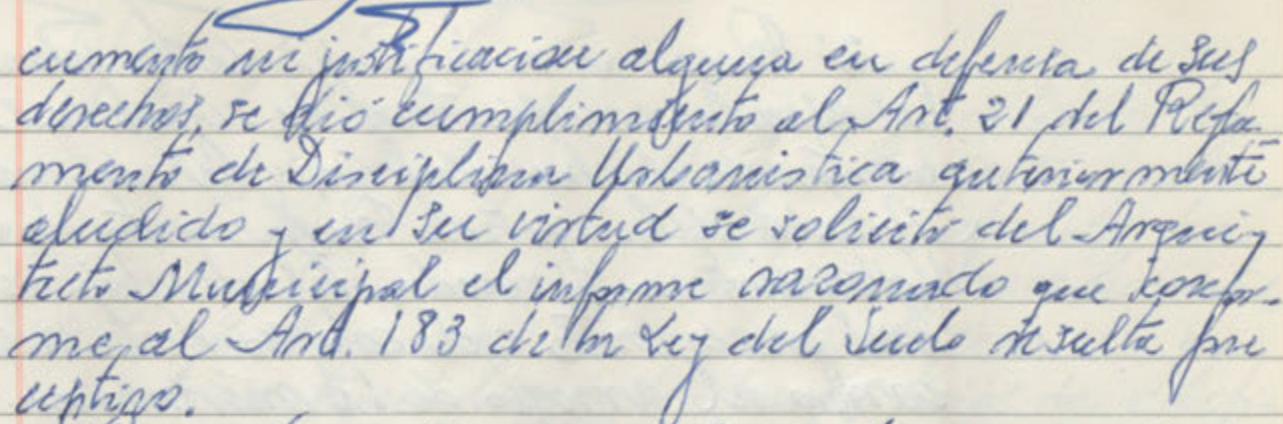 cumento ni justificacion alguna en defensa de sus
derechos, se dió cumplimiento al Art. 21 del Regla-
mento de Disciplina Urbanistica anteriormente
aludido y en su virtud se solicitó del Arqui-
tecto Municipal el informe razonado que confor-
me al Art. 183 de la Ley del Suelo resulta pre
ceptivo.